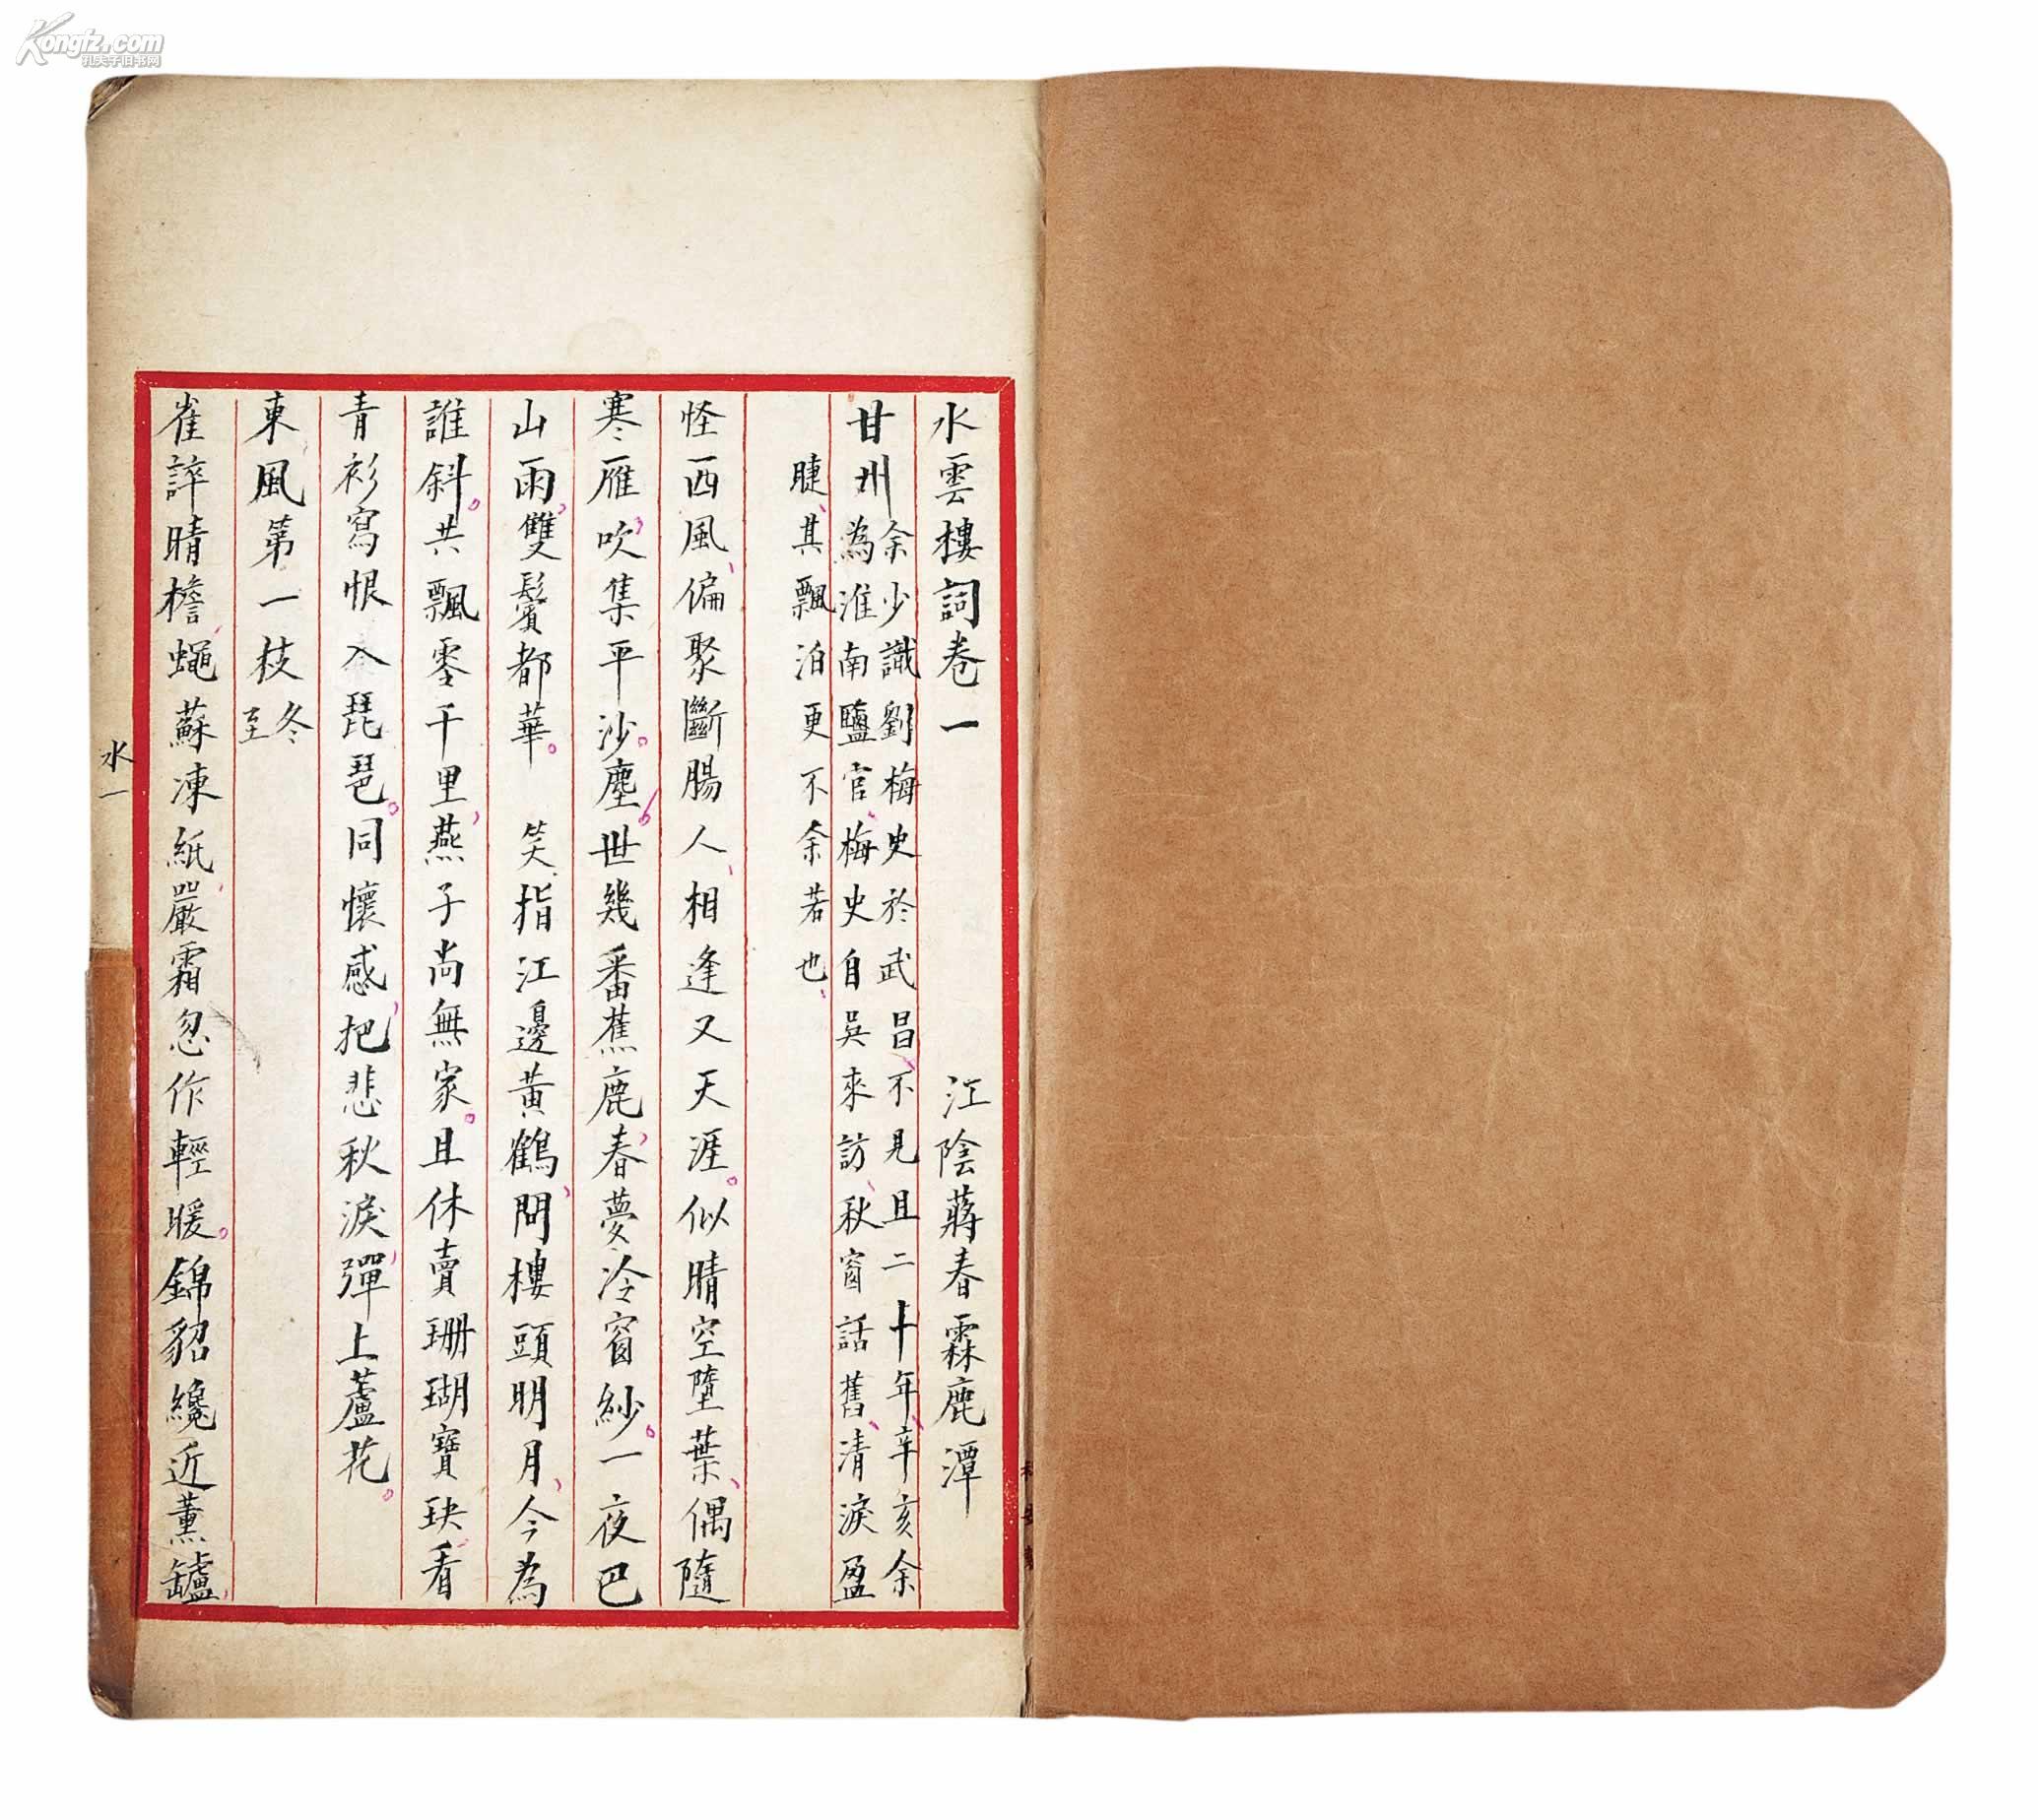 水雲樓詞卷一
江陰蔣春霖鹿潭
甘州
余少識劉梅史於武昌、不見且二十年、辛亥余
為淮南鹽官、梅史自吳來訪、秋窗話舊、清淚盈
睫、其飄泊更不余若也、
怪西風、偏聚斷腸人、相逢又天涯。似晴空墮葉、偶隨
寒雁、吹集平沙。塵世幾番蕉鹿、春夢冷窗紗。一夜巴
山雨、雙鬢都華。　笑指江邊黃鶴、問樓頭明月、今為
誰斜。共飄零千里、燕子尚無家。且休賣珊瑚寶玦、看
青衫寫恨入琵琶。同懷感、把悲秋淚、彈上蘆花。
東風第一枝
冬
至
雀誶晴檐、蠅蘇凍紙、嚴霜忽作輕暖。錦貂纔近薰罏、
水一
Kongfz.com
孔夫子旧书网